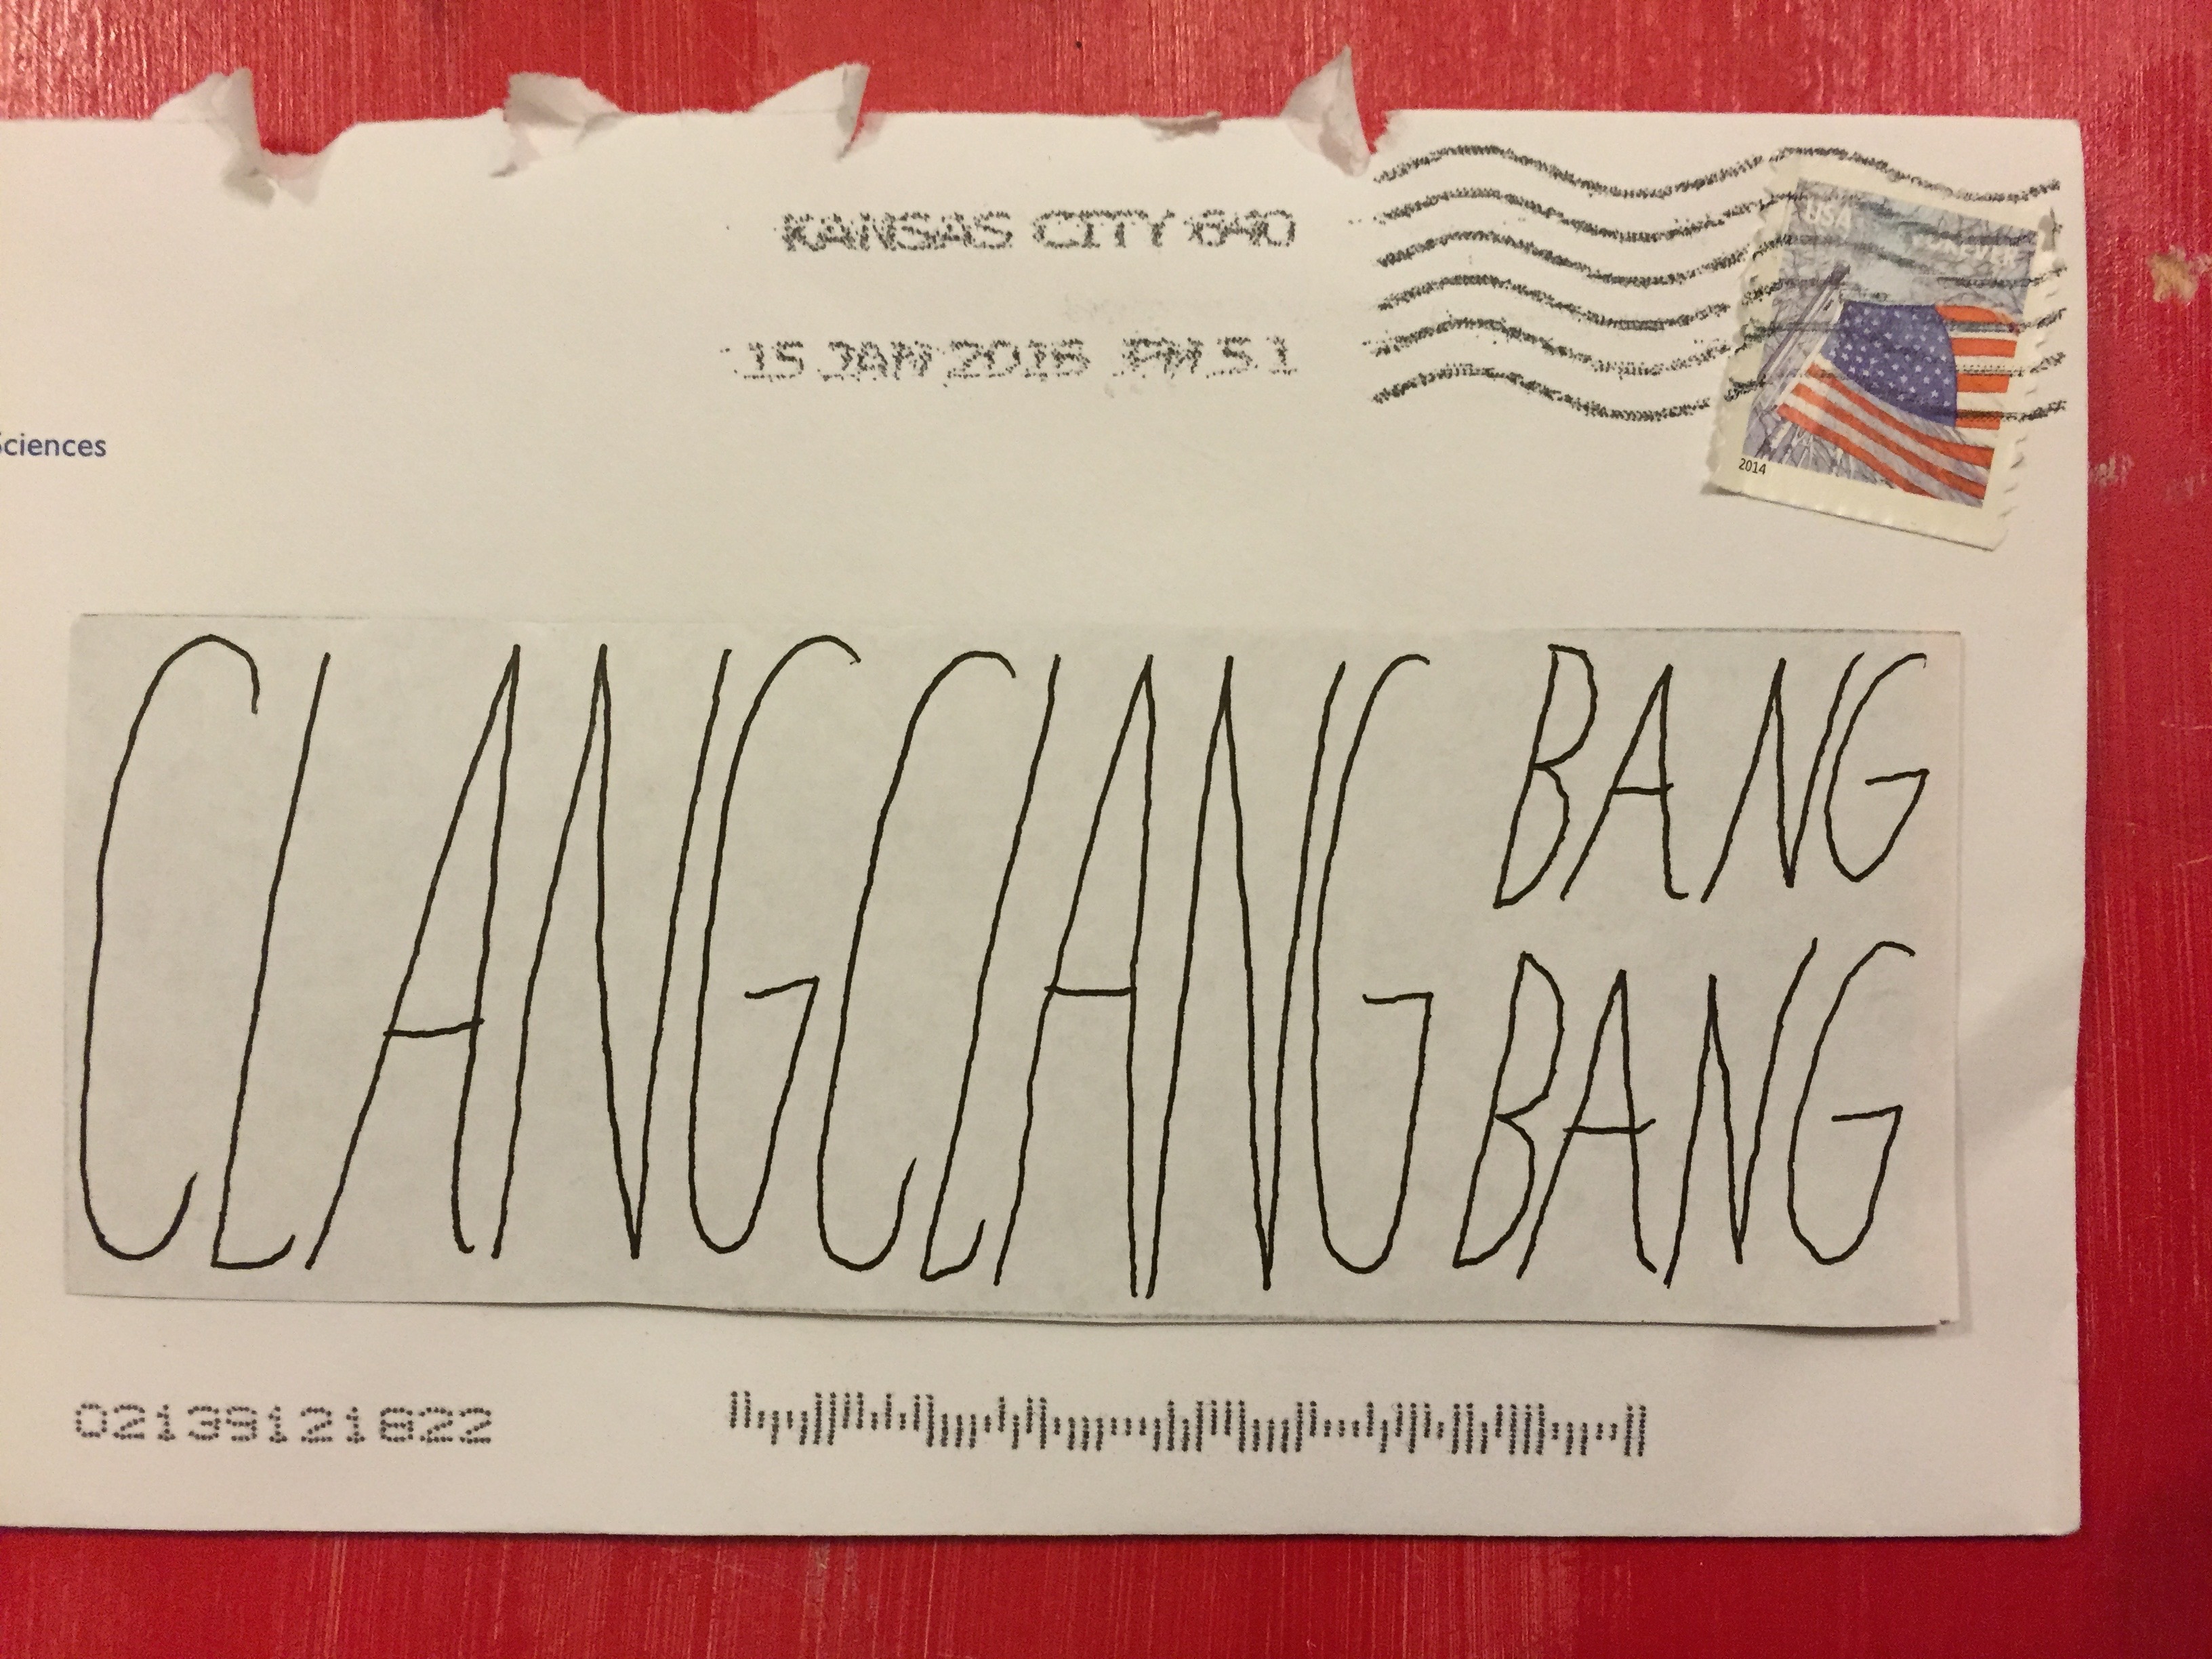 KANSAS CITY 640
15 JAN 2016 PM 5 1
USA FOREVER
2014
Sciences
CLANG CLANG BANG
BANG
02139121822